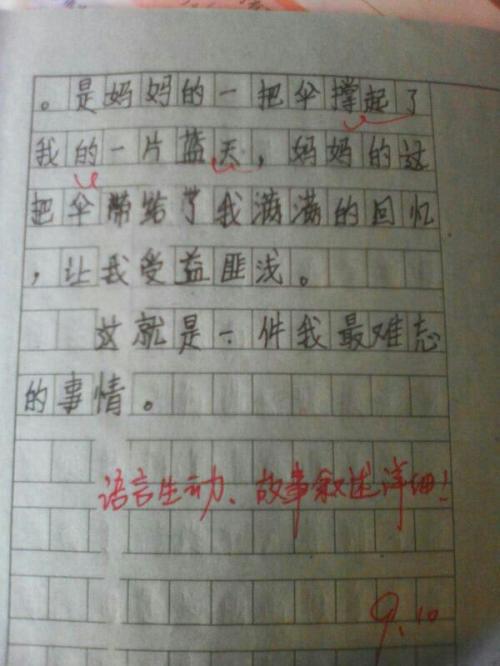 。是妈妈的一把伞撑起了
我的一片蓝天，妈妈的这
把伞带给了我满满的回忆
，让我受益匪浅。
这就是一件我最难忘
的事情。
语言生动、故事叙述详细！
9.10